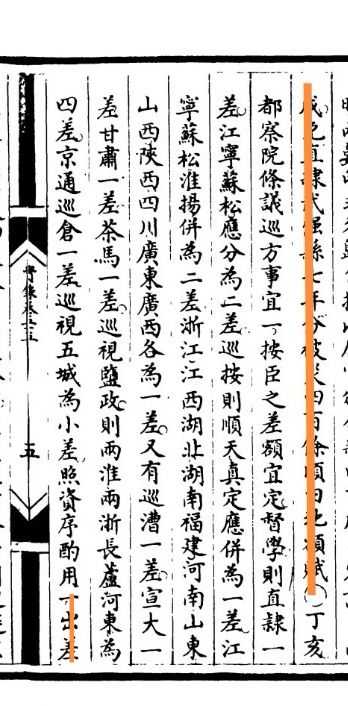 免直隷武强縣七年分被災四百餘頃田地額賦○丁亥
都察院條議巡方事宜一按臣之差額宜定督學則直隷一
差江寧蘇松應分為二差巡按則順天真定應併為一差江
寧蘇松淮揚併為二差浙江江西湖北湖南福建河南山東
山西陝西四川廣東廣西各為一差又有巡漕一差宣大一
差甘肅一差茶馬一差巡視鹽政則兩淮兩浙長蘆河東為
四差京通巡倉一差巡視五城為小差照資序酌用一出差
實錄卷
五